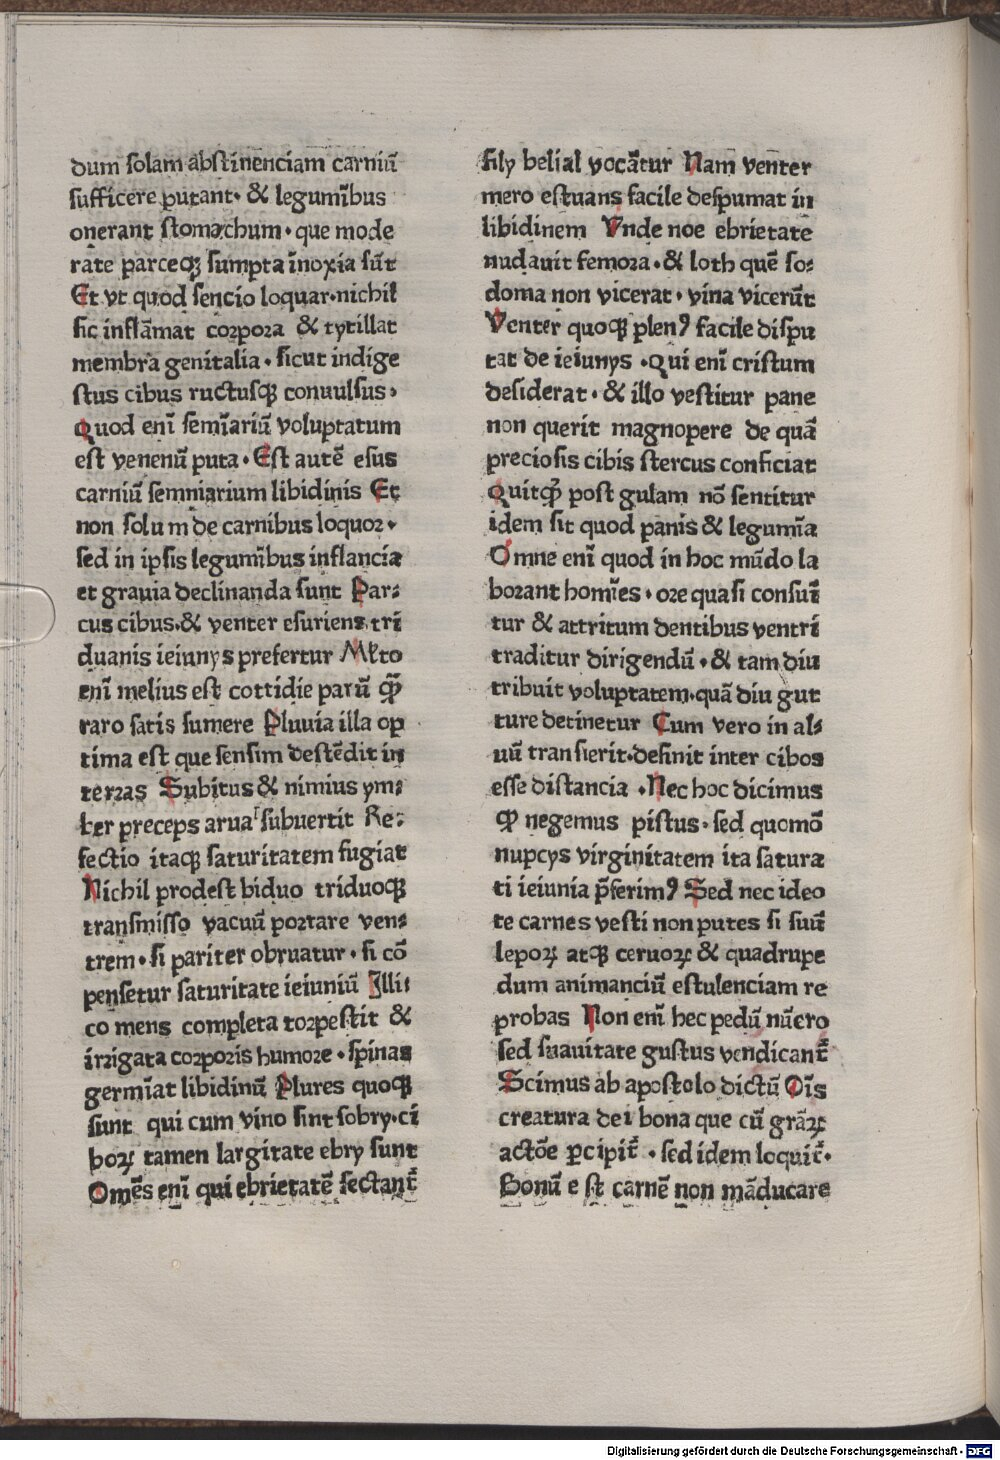 dum solam abstinenciam carniū
sufficere putant· & legumībus
onerant stomachum· que mode
rate parceqꝫ sumpta īnoxia sūt
Et vt quod sencio loquar·nichil
sic inflāmat corpora & tytillat
membra genitalia· sicut indige
stus cibus ructusqꝫ conuulsus·
Quod enī semīariū voluptatum
est venenū puta· Est autē esus
carniū semniarium libidinis Et
non solu m de carnibus loquor·
sed in ipsis legumībus inflancia
et grauia declinanda sunt Par⸗
cus cibus·& venter esuriens trī
duanis ieiunys prefertur Mlto
enī melius est cottidie parū qꝫ̄
raro satis sumere Pluuia illa op
tima est que sensim destēdit in
terras Subitus & nimius ym⸗
ber preceps arua subuertit Re⸗
fectio itaqꝫ saturitatem fugiat
Nichil prodest biduo triduoqꝫ
transmisso vacuū portare ven⸗
trem· si pariter obruatur· si cō
pensetur saturitate ieiuniū Illi⸗
co mens completa torpestit &
irrigata corporis humore· spinas
germīat libidinū Plures quoqꝫ
sunt qui cum vino sint sobry·cī
boꝝ tamen largitate ebry sunt
Omēs enī qui ebrietatē sectant̄
fily belial vocātur Nam venter
mero estuans facile despumat in
libidinem Vnde noe ebrietate
nudauit femora· & loth quē so⸗
doma non vicerat· vina vicerūt
Venter quoqꝫ plenꝰ facile dispu
tat de ieiunys ·Qui enī cristum
desiderat· & illo vestitur pane
non querit magnopere de quā
preciosis cibis stercus conficiat
Quitqꝫ̄ post gulam nō sentitur
idem sit quod panis & legumīa
Omne enī quod in hoc mūdo la
borant homīes· ore quasi consuī
tur & attritum dentibus ventrī
traditur dirigendū· & tam diu
tribuit voluptatem·quā diu gut
ture detinetur Cum vero in al⸗
uū transierit·desinit inter cibos
esse distancia ·Nec hoc dicimus
qꝫ̄ negemus pistus· sed quomō
nupcys virginitatem ita satura
ti ieiunia p̄ferimꝰ Sed nec ideo
te carnes vesti non putes si suū
lepoꝝ atqꝫ ceruoꝝ & quadrupe
dum animanciū estulenciam re
probas Non enī hec pedū nūero
sed suauitate gustus vendicant̄
Scimus ab apostolo dictū Oīs
creatura dei bona que cū grāꝝ
actōe ꝑcipit̄ · sed idem loquit̄·
Bonū e st carnē non māducare
Digitalisierung gefördert durch die Deutsche Forschungsgemeinschaft - DFG